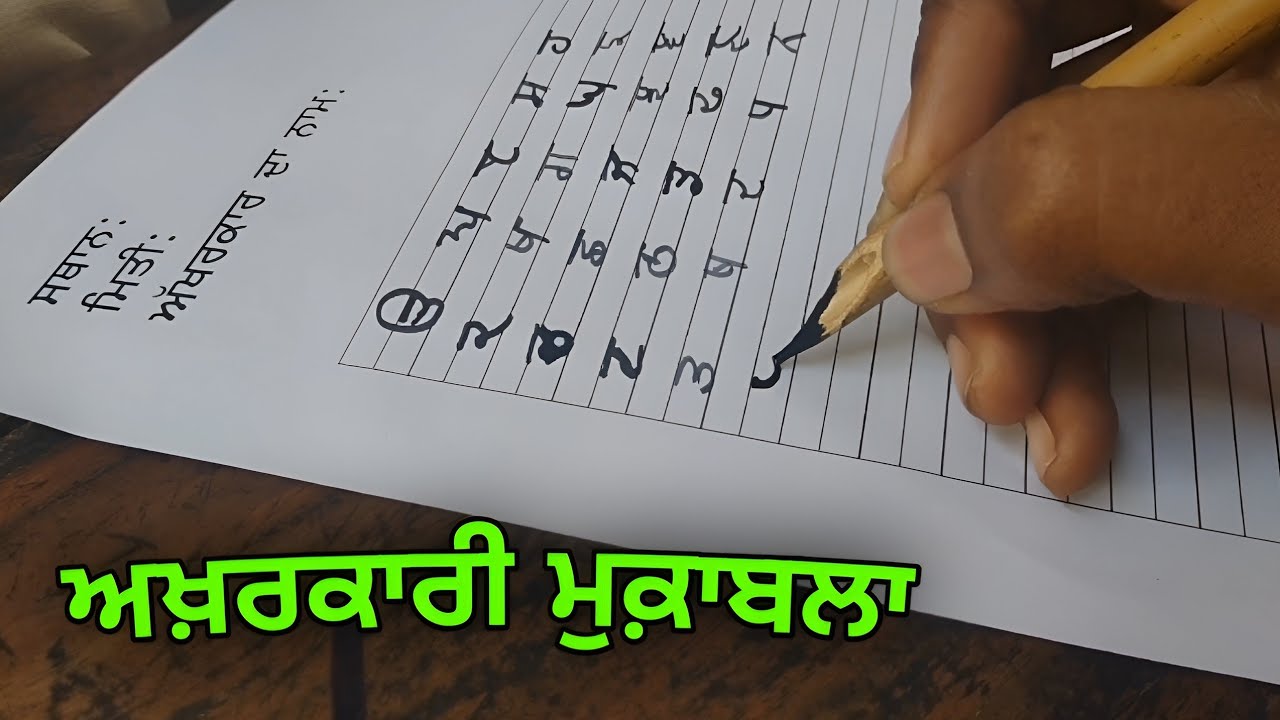 ਸਥਾਨ:
ਮਿਤੀ:
ਅੱਖਰਕਾਰ ਦਾ ਨਾਮ:
ੳ ਅ ੲ ਸ ਹ
ਕ ਖ ਗ ਘ ਙ
ਚ ਛ ਜ ਝ ਞ
ਟ ਠ ਡ ਢ ਣ
ਤ ਥ ਦ ਧ ਨ
ਅਖ਼ਰਕਾਰੀ ਮੁਕ਼ਾਬਲਾ